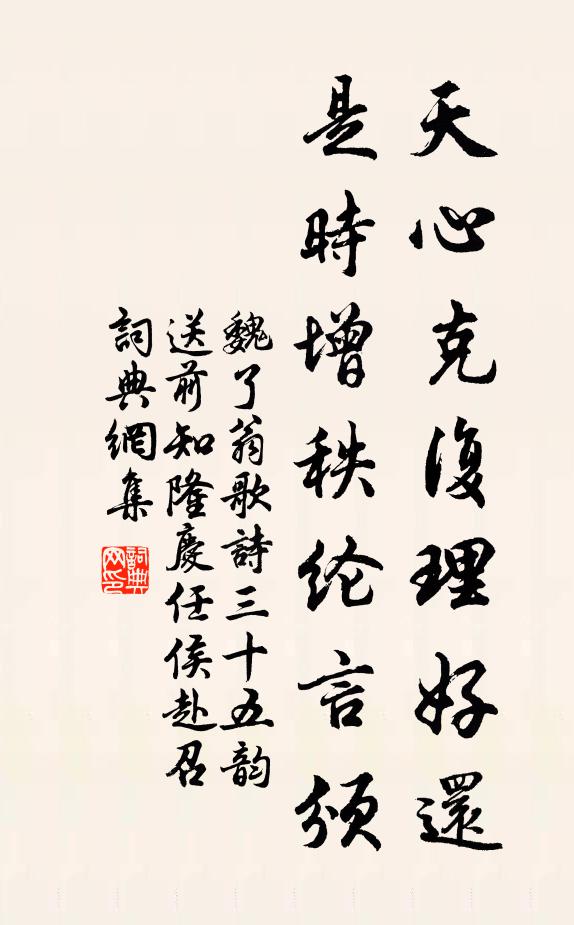 天心克復理好還
是時增秩纶言頒
魏了翁歌詩三十五韵
送前知隆慶任侯赴召
詞典網集
詞典网印